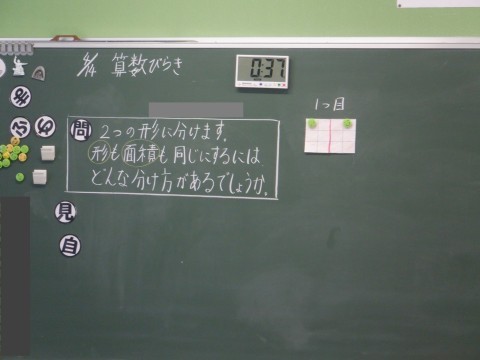 4/14 算数びらき
0:37
1つ目
問 2つの形に分けます。
形も面積も同じにするには
どんな分け方があるでしょうか。
見
自